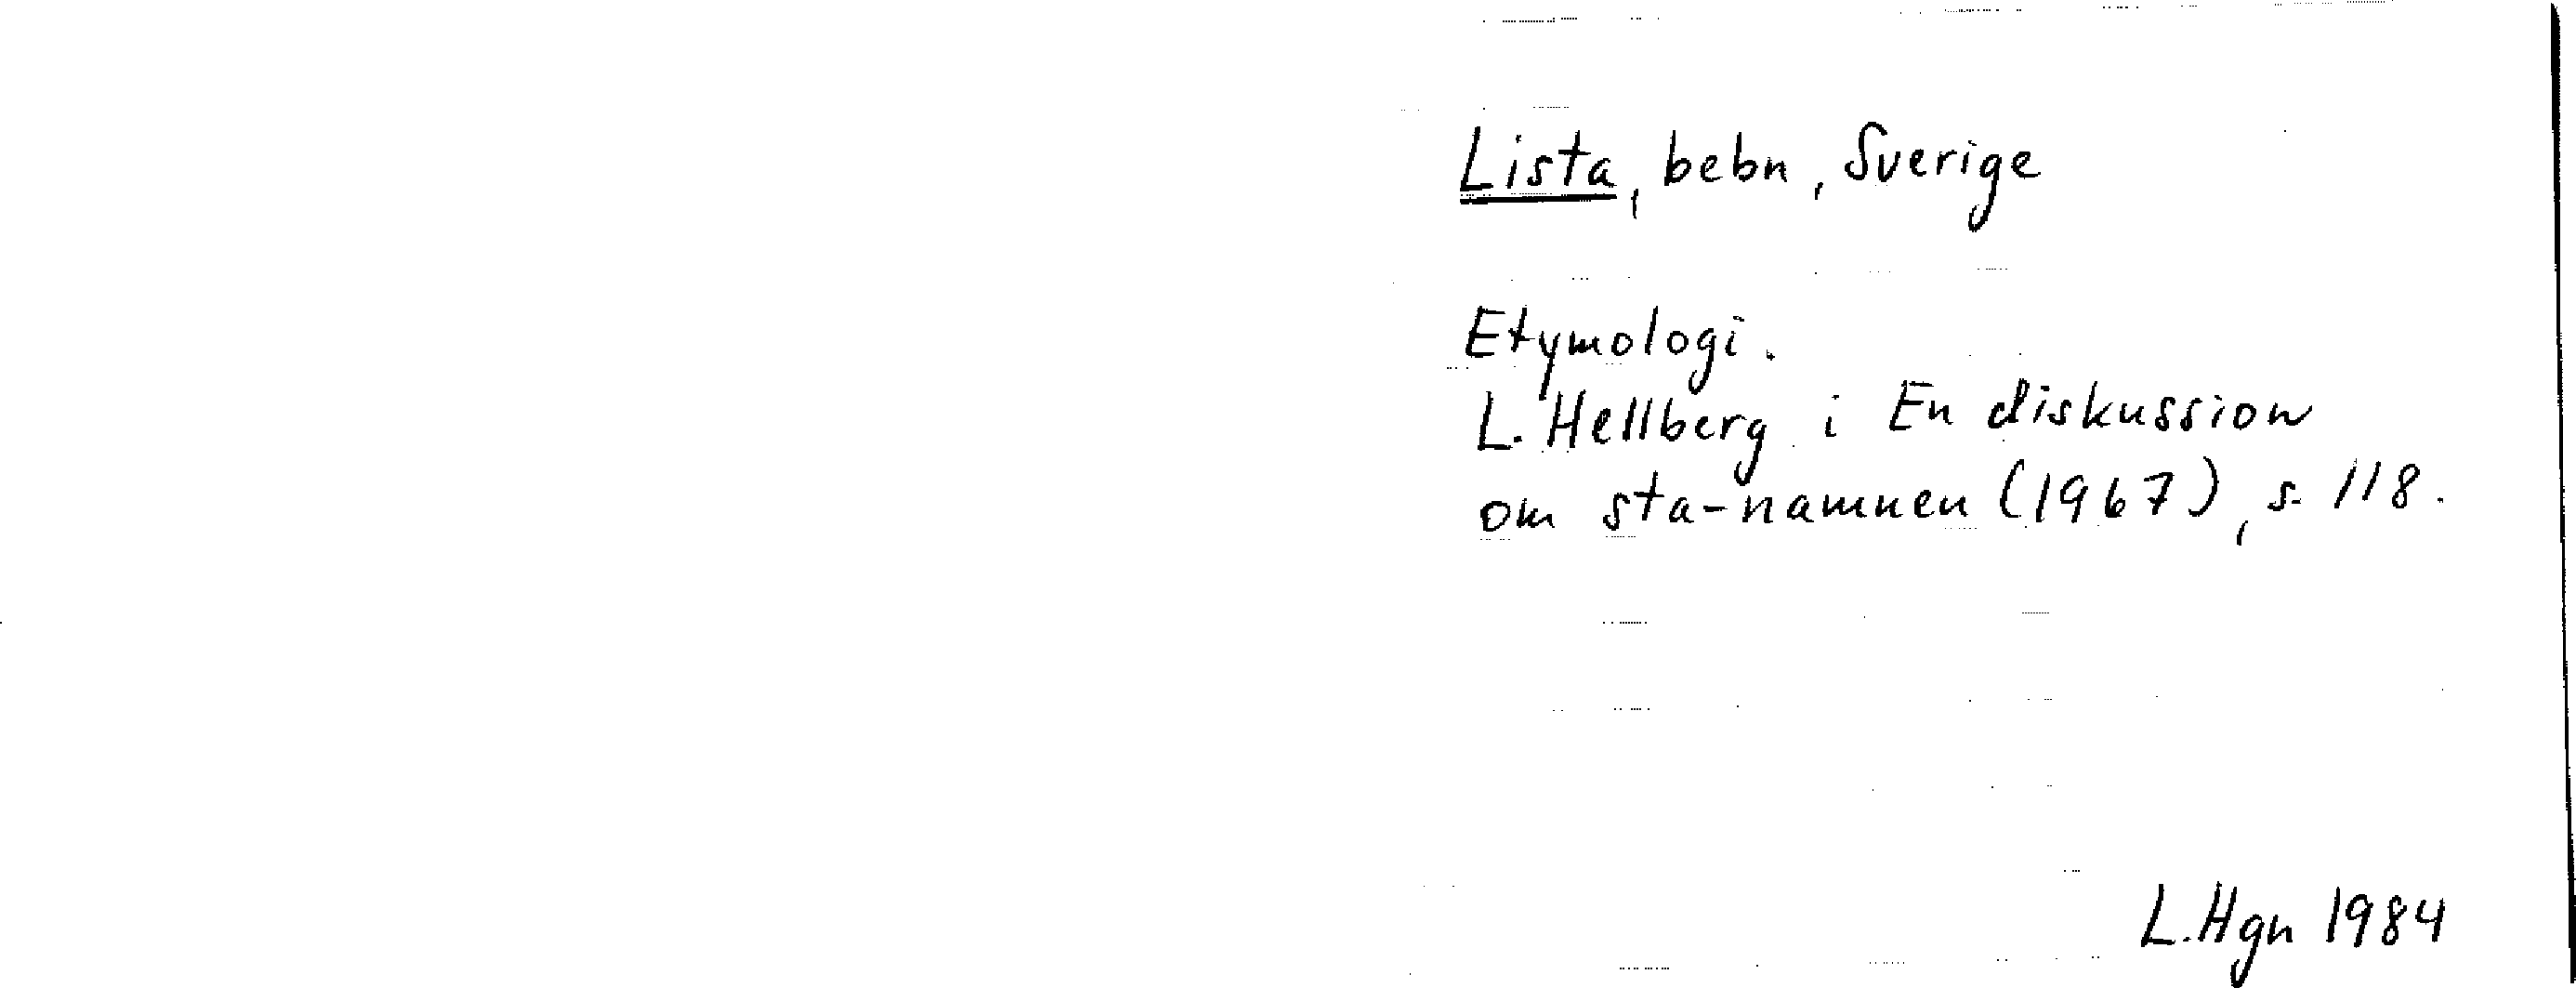 Lista, bebn, Sverige
Etymologi.
L. Hellberg i En diskussion
om sta-namnen (1967), s. 118.
L. Hgn 1984